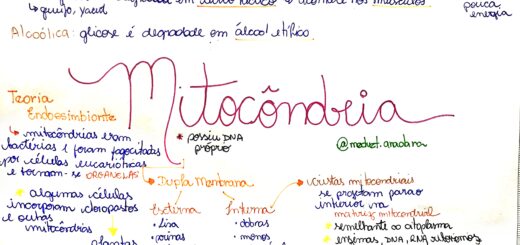 ↳ queijo, yaud
pouca
energia
Alcoólica: glicose é degradada em álcool etílico.
Mitocôndria
Teoria
Endossimbionte
↳ mitocôndrias eram
bactérias e foram fagocitadas
por células eucarióticas
e tornam-se ORGANELAS
* possui DNA
próprio
@medvet.anadana
algumas células
incorporam cloroplastos
e outras
mitocôndrias
→ Dupla Membrana
Externa
• lisa
Interna
• dobras
• menos
→ Cristas mitocondriais
se projetam para o
interior na
matriz mitocondrial
semelhante ao citoplasma
enzimas, DNA, RNA